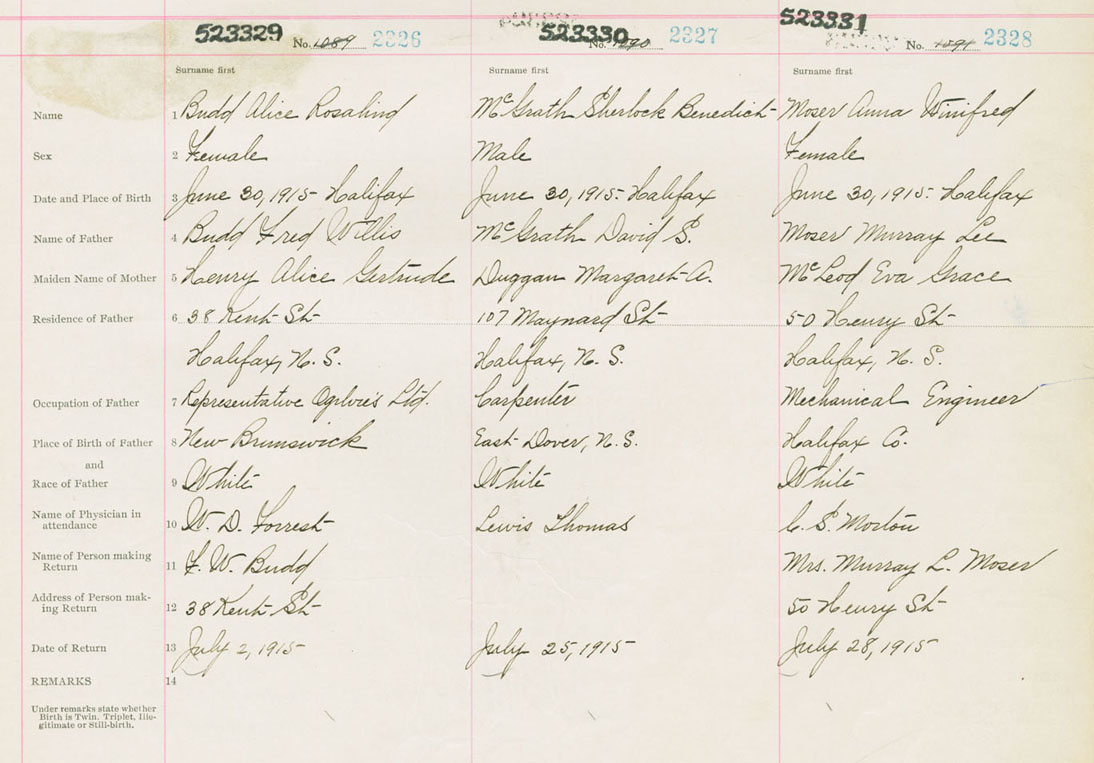 523329 No. 1089 2326
523330 No. 1090 2327
523331 No. 1091 2328
Surname first Surname first Surname first
Name 1 Budd Alice Rosalind McGrath Sherlock Benedict Moser Anna Winifred
Sex 2 Female Male Female
Date and Place of Birth 3 June 30, 1915 Halifax June 30, 1915. Halifax June 30, 1915. Halifax
Name of Father 4 Budd Fred Willis McGrath David S. Moser Murray Lee
Maiden Name of Mother 5 Henry Alice Gertrude Duggan Margaret A. McLeod Eva Grace
Residence of Father 6 38 Kent St 107 Maynard St 50 Henry St
Halifax, N. S. Halifax, N. S. Halifax, N. S.
Occupation of Father 7 Representative Ogilvies Ltd. Carpenter Mechanical Engineer
Place of Birth of Father 8 New Brunswick East Dover, N. S. Halifax Co.
and
Race of Father 9 White White White
Name of Physician in
attendance 10 W. D. Forrest Lewis Thomas C. S. Morton
Name of Person making
Return 11 F. W. Budd Mrs. Murray L. Moser
Address of Person mak-
ing Return 12 38 Kent St 50 Henry St
Date of Return 13 July 2, 1915 July 25, 1915 July 28, 1915
REMARKS 14
Under remarks state whether
Birth is Twin. Triplet, Ille-
gitimate or Still-birth.